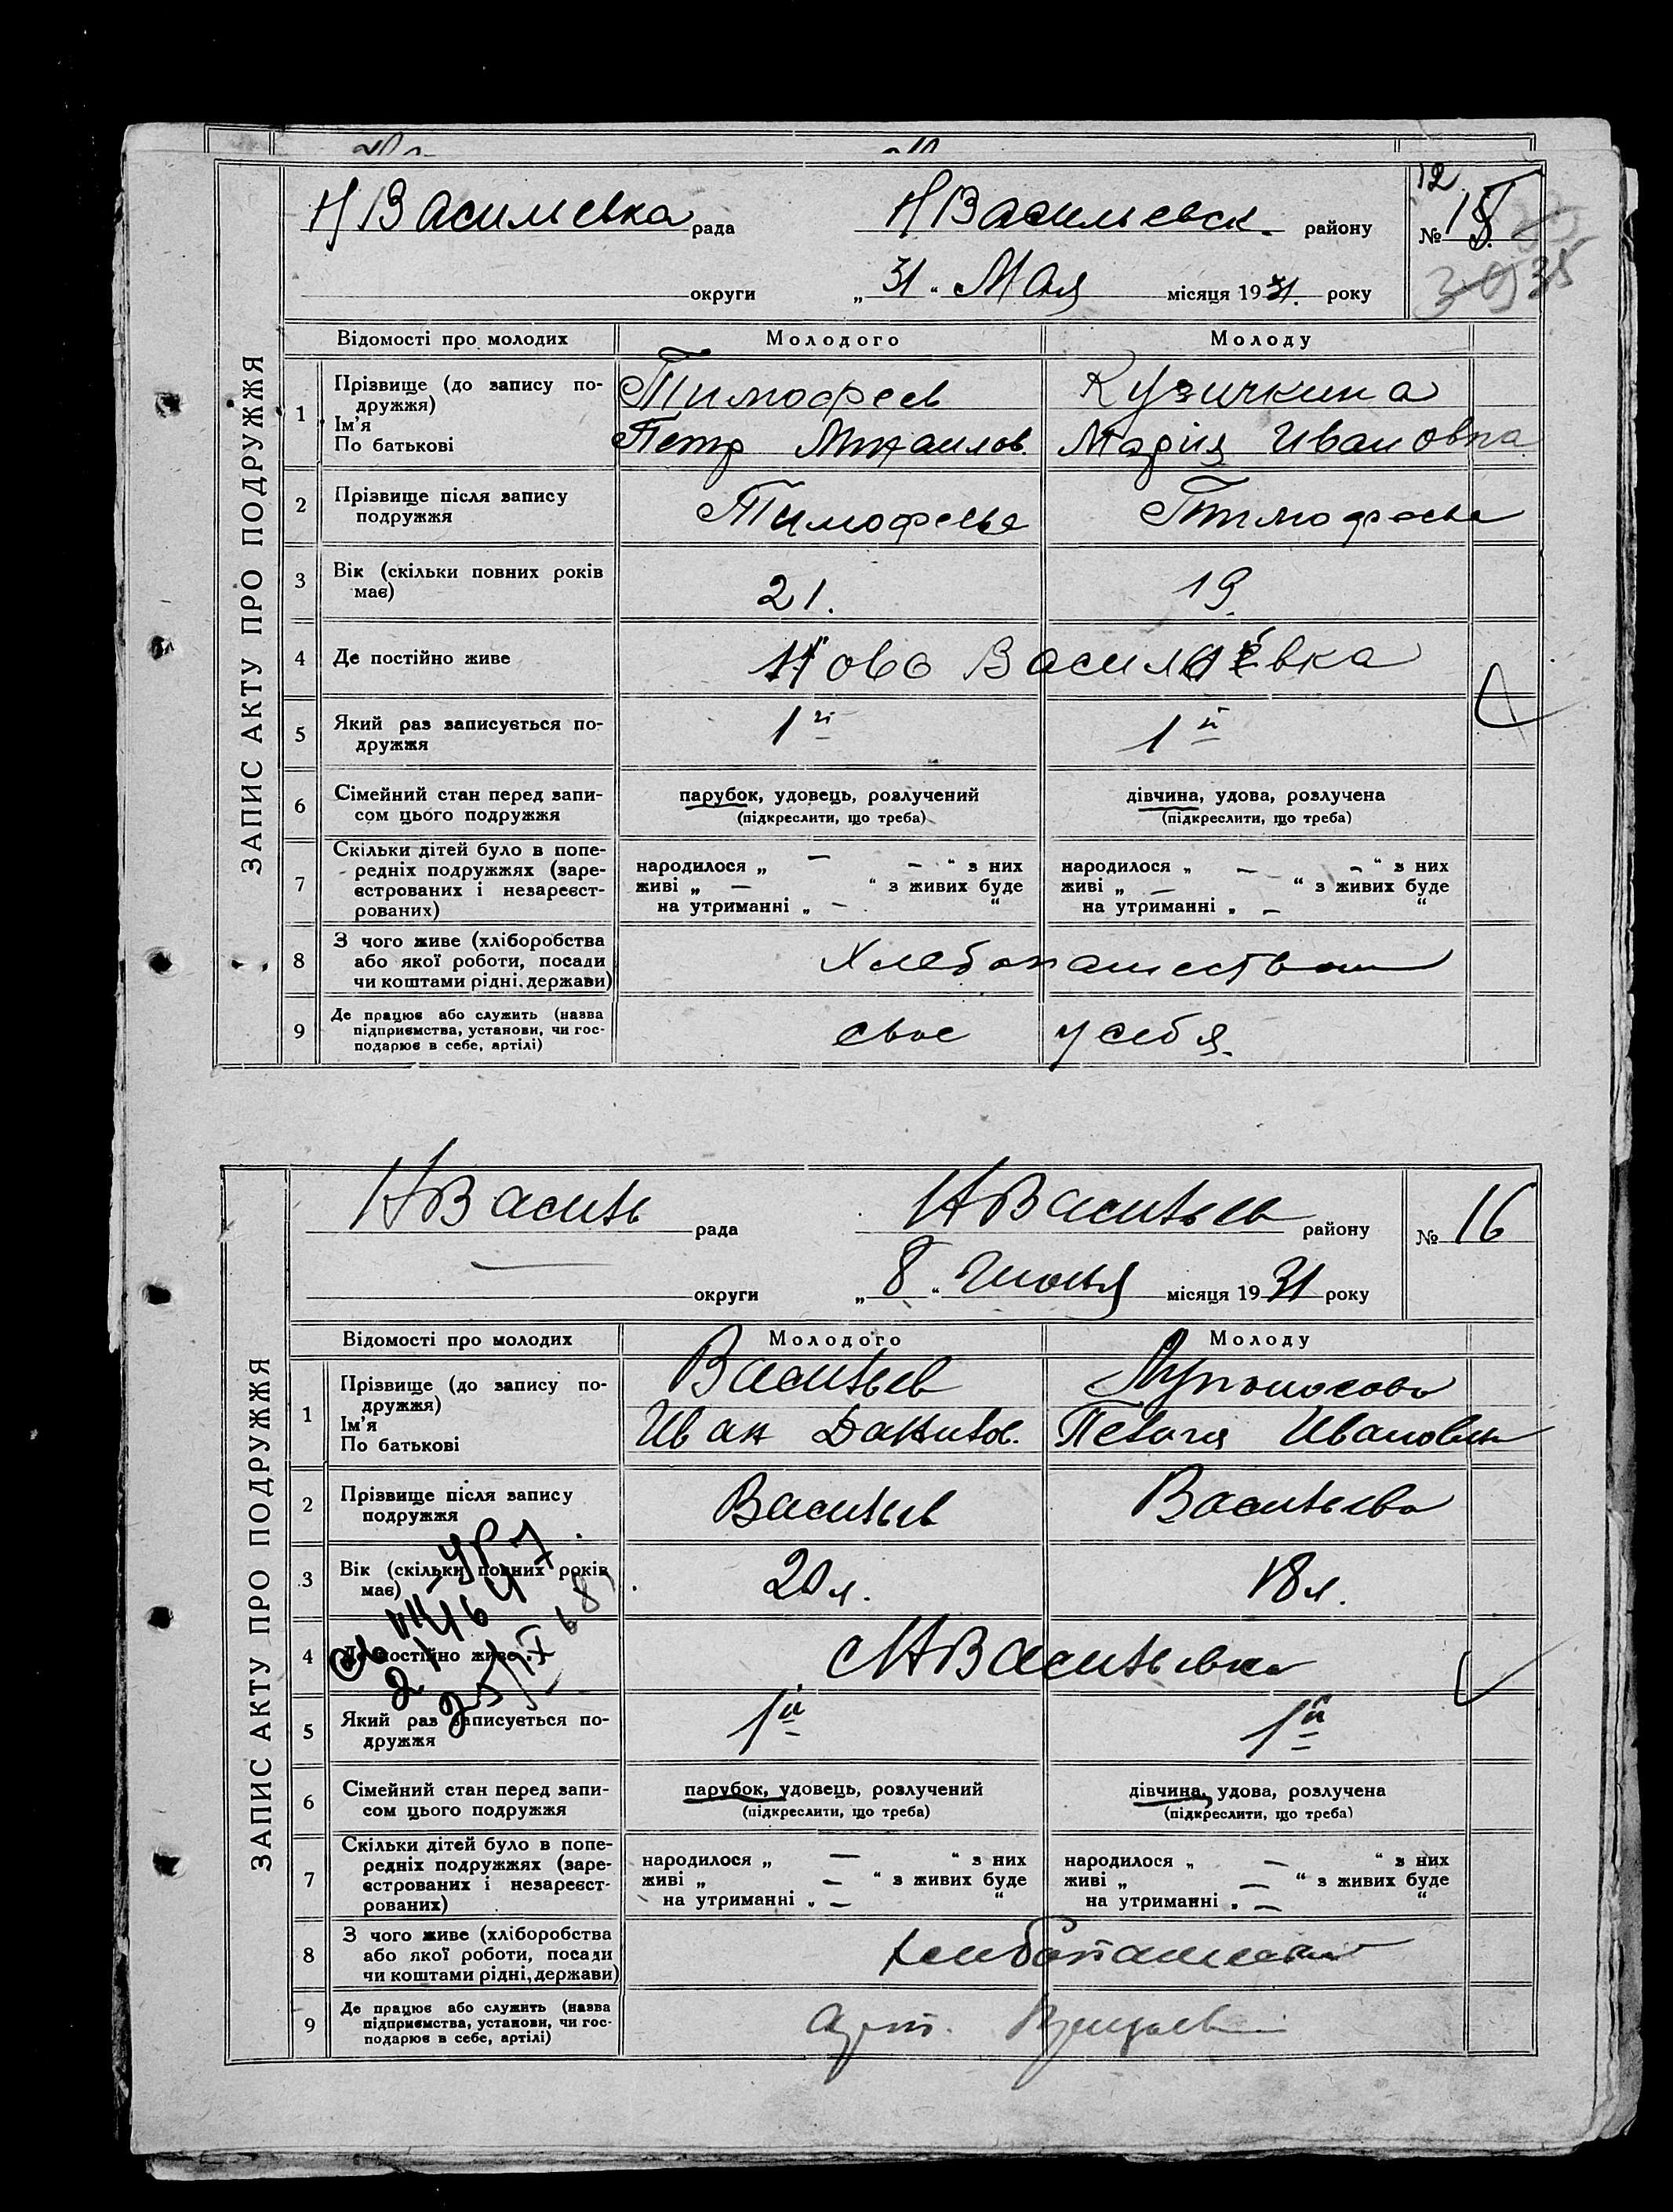 ЗАПИС АКТУ ПРО ПОДРУЖЖЯ
Н Василевка рада Н Васильевск. району № 15
округи „ 31 “ Мая місяця 1931. року
12
35
Відомості про молодих Молодого Молоду
1 Прізвище (до запису по-
дружжя)
Ім'я
По батькові
Тимофеев Кузичкина
Петр Михаилов. Мария Ивановна
2 Прізвище після запису
подружжя
Тимофеева Тимофеева
3 Вік (скільки повних років
має)
21. 19.
4 Де постійно живе
Ново Васильевка
5 Який раз записується по-
дружжя
1й 1й
6 Сімейний стан перед запи-
сом цього подружжя
парубок, удовець, розлучений дівчина, удова, розлучена
(підкреслити, що треба) (підкреслити, що треба)
7 Скільки дітей було в попе-
редніх подружжях (заре-
єстрованих і незареєст-
рованих)
народилося „ — — “ з них народилося „ — — “ з них
живі „ — “ з живих буде живі „ — “ з живих буде
на утриманні „ — “ на утриманні „ — “
8 З чого живе (хліборобства
або якої роботи, посади
чи коштами рідні, держави)
Хлебопашеством
9 Де працює або служить (назва
підприємства, установи, чи гос-
подарює в себе, артілі)
свое у себя.
ЗАПИС АКТУ ПРО ПОДРУЖЖЯ
Н Василь рада Н Васильев району № 16
округи „ 8 “ Июня місяця 1931 року
Відомості про молодих Молодого Молоду
1 Прізвище (до запису по-
дружжя)
Ім'я
По батькові
Васильев
Иван Данилов. Ивановна
2 Прізвище після запису
подружжя
Васильев Васильева
3 Вік (скільки повних років
має)
20 л. 18 л.
4 Де постійно живе
Н Васильевка
25/IX 68
5 Який раз записується по-
дружжя
1й 1й
6 Сімейний стан перед запи-
сом цього подружжя
парубок, удовець, розлучений дівчина, удова, розлучена
(підкреслити, що треба) (підкреслити, що треба)
7 Скільки дітей було в попе-
редніх подружжях (заре-
єстрованих і незареєст-
рованих)
народилося „ — “ з них народилося „ — “ з них
живі „ — “ з живих буде живі „ — “ з живих буде
на утриманні „ — “ на утриманні „ — “
8 З чого живе (хліборобства
або якої роботи, посади
чи коштами рідні, держави)
9 Де працює або служить (назва
підприємства, установи, чи гос-
подарює в себе, артілі)
арт.